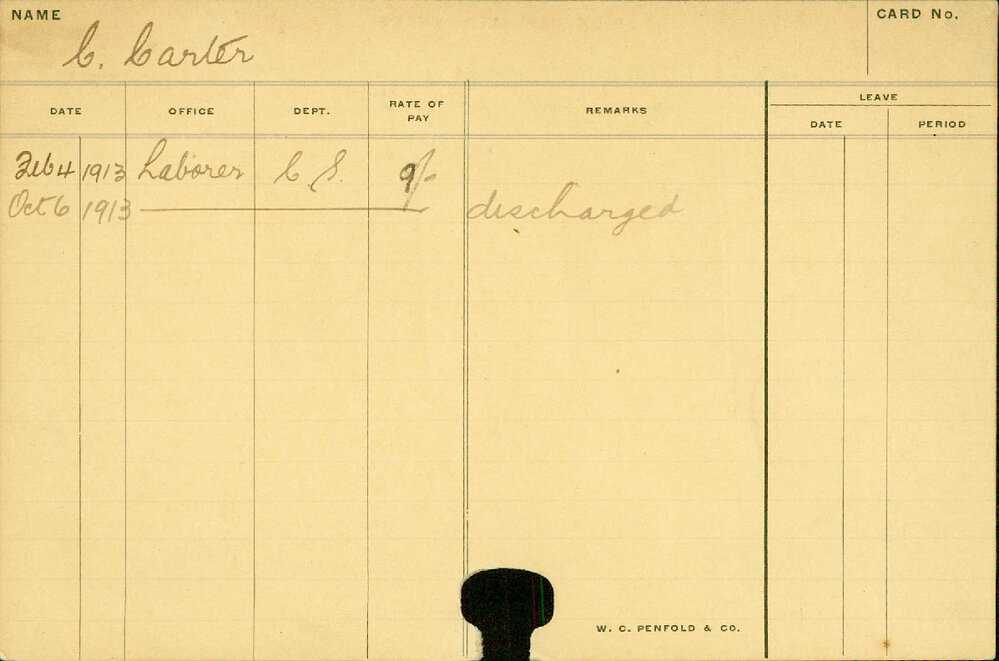 NAME
C. Carter
CARD No.
DATE OFFICE DEPT. RATE OF PAY REMARKS LEAVE
DATE PERIOD
Feb 4 1913 Laborer C S. 9/-
Oct 6 1913 discharged
W. C. PENFOLD & CO.